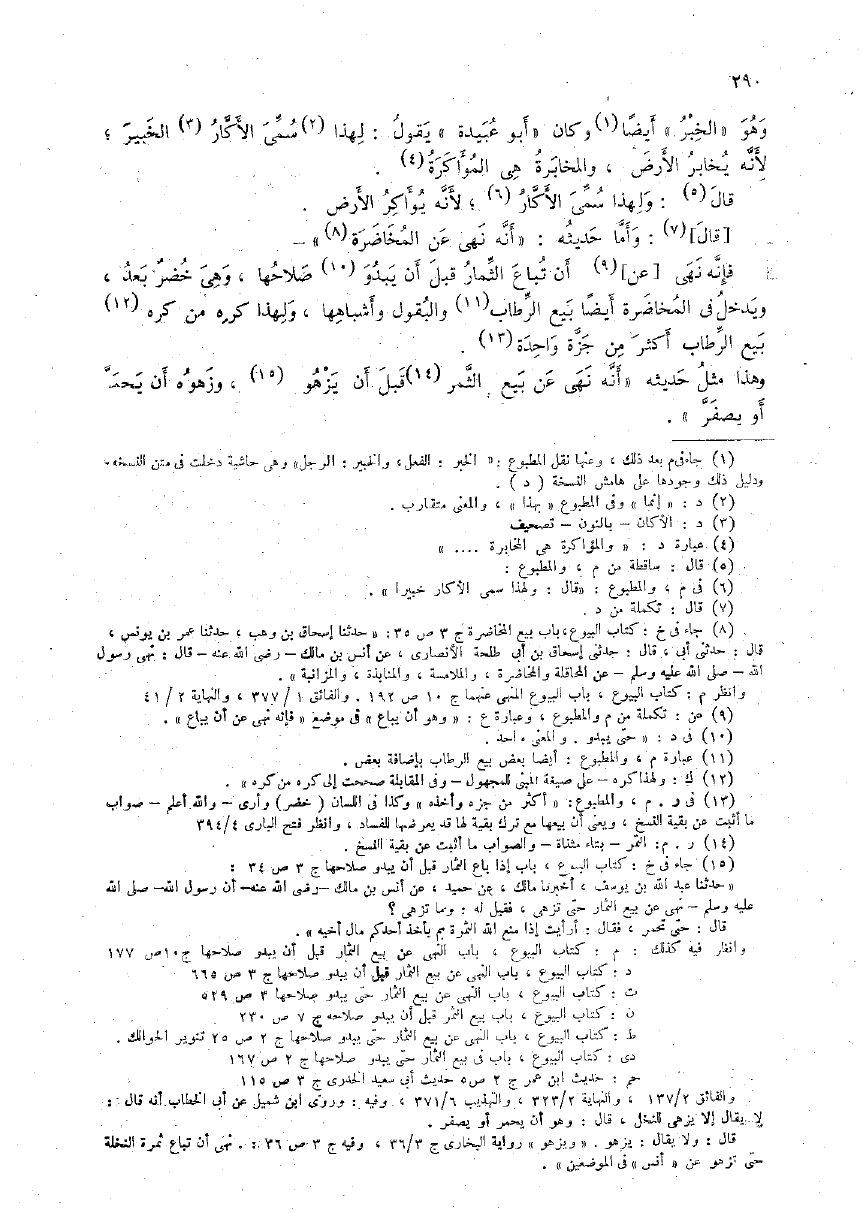 ٢٩٠
وَهُوَ «الخِبْرُ» أَيضًا(١) وكان «أَبو عُبَيدة» يَقولُ : لِهذا (٢) سُمِّىَ الأَكَّارُ (٣) الخَبيرَ ؛
لأَنَّه يُخابرُ الأَرضَ ، والمخابَرةُ هِى المُؤَاكَرَةُ (٤) .
قالَ (٥) : وَلِهذا سُمِّىَ الأَكَّارُ (٦) ؛ لأَنَّه يُؤَاكِرُ الأَرض .
[قالَ] (٧) : وَأَمَّا حَديثُه : «أَنَّه نَهى عَن المُخَاضَرَة (٨) » –
فإِنَّه نَهَى [عن] (٩) أَن تُباعَ الثِّمارُ قبلَ أَن يَبدُوَ (١٠) صَلاحُها ، وَهِىَ خُضرٌ بَعدُ ،
ويَدخلُ فى المُخاضَرة أَيضًا بَيع الرِّطاب (١١) والبُقول وأَشباهِها ، وَلِهذا كرِه من كره (١٢)
بَيع الرِّطاب أَكثرَ مِن جَزَّة وَاحِدَة (١٣) .
وهذا مثلُ حَديثه «أَنَّه نَهَى عَن بَيع الثَّمر (١٤) قَبلَ أَن يَزْهُو (١٥) ، وزَهوُه أَن يَحمَرَّ
أَو يصفَرَّ » .
(١) جاء فى م بعد ذلك ، وعنها نقل المطبوع : « الخبر : الفعل ، والخبير : الرجل» وهى حاشية دخلت فى متن النسخة .
ودليل ذلك وجودها على هامش النسخة ( د ) .
(٢) د : « إنما » وفى المطبوع « بهذا » ، والمعنى متقارب .
(٣) د : الأكان – بالنون – تصحيف
(٤) عبارة د : « والمؤاكرة هى المخابرة .... »
(٥) قال : ساقطة من م ، والمطبوع :
(٦) فى م ، والمطبوع : «قال : ولهذا سمى الأكار خبيرا » .
(٧) قال : تكملة من د .
(٨) جاء فى خ : كتاب البيوع ، باب بيع المخاضرة ج ٣ ص ٣٥ : « حدثنا إسحاق بن وهب ، حدثنا عمر بن يونس ،
قال : حدثنى أبى ، قال : حدثنى إسحاق بن أبى طلحة الأنصارى ، عن أنس بن مالك – رضى الله عنه – قال : نهى رسول
الله – صلى الله عليه وسلم – عن المحاقلة والمخاضرة ، والملامسة ، والمنابذة ، والمزابنة » .
وانظر م : كتاب البيوع ، باب البيوع المنهى عنهما ج ١٠ ص ١٩٢ . والفائق ١ / ٣٧٧ ، والنهاية ٢ / ٤١
(٩) عن : تكملة من م والمطبوع ، وعبارة ع : « وهو أن يباع » فى موضع «فإنه نهى عن أن يباع » .
(١٠) فى د : « حتى يبدو . والمعنى واحد .
(١١) عبارة م ، والمطبوع : أيضا بعض بيع الرطاب بإضافة بعض .
(١٢) ك : ولهذا كره – على صيغة المبنى للمجهول – وفى المقابلة صححت إلى كره من كره » .
(١٣) فى ر . م ، والمطبوع : « أكثر من جزه وأخذه » وكذا فى اللسان ( خضر ) وأرى – والله أعلم – صواب
ما أثبت عن بقية النسخ ، ويعنى أن بيعها مع ترك بقية لها قد يعرضها للفساد ، وانظر فتح البارى ٣٩٤/٤
(١٤) ر . م : التمر – بتاء مثناة – والصواب ما أثبت عن بقية النسخ .
(١٥) جاء فى خ : كتاب البيوع ، باب إذا باع الثمار قبل أن يبدو صلاحها ج ٣ ص ٣٤ :
« حدثنا عبد الله بن يوسف ، أخبرنا مالك ، عن حميد ، عن أنس بن مالك – رضى الله عنه – أن رسول الله – صلى الله
عليه وسلم – نهى عن بيع الثمار حتى تزهى ، فقيل له : وما تزهى ؟
قال : حتى تحمر ، فقال : أرأيت إذا منع الله الثمرة بم يأخذ أحدكم مال أخيه » .
وانظر فيه كذلك : م : كتاب البيوع ، باب النهى عن بيع الثمار قبل أن يبدو صلاحها ج ١٠ ص ١٧٧
د : كتاب البيوع ، باب النهى عن بيع الثمار قبل أن يبدو صلاحها ج ٣ ص ٦٦٥
ت : كتاب البيوع ، باب النهى عن بيع الثمار حتى يبدو صلاحها ٣ ص ٥٢٩
ن : كتاب البيوع ، باب بيع الثمر قبل أن يبدو صلاحه ج ٧ ص ٢٣٠
ط : كتاب البيوع ، باب النهى عن بيع الثمار حتى يبدو صلاحها ج ٢ ص ٢٥ تنوير الحوالك .
دى : كتاب البيوع ، باب فى بيع الثمار حتى يبدو صلاحها ج ٢ ص ١٦٧
حم : حديث ابن عمر ج ٢ ص ٥ حديث أبى سعيد الخدرى ج ٣ ص ١١٥
والفائق ١٣٧/٢ ، والنهاية ٣٢٣/٢ ، والتهذيب ٣٧١/٦ ، وفيه : وروى ابن شميل عن أبى الخطاب أنه قال :
لا يقال إلا يزهى للنخل ، قال : وهو أن يحمر أو يصفر .
قال : ولا يقال : يزهو . « ويزهو » رواية البخارى ج ٣٦/٣ ، وفيه ج ٣ ص ٣٦ : . نهى أن تباع ثمرة النخلة
حتى تزهو عن « أنس » فى الموضعين » .